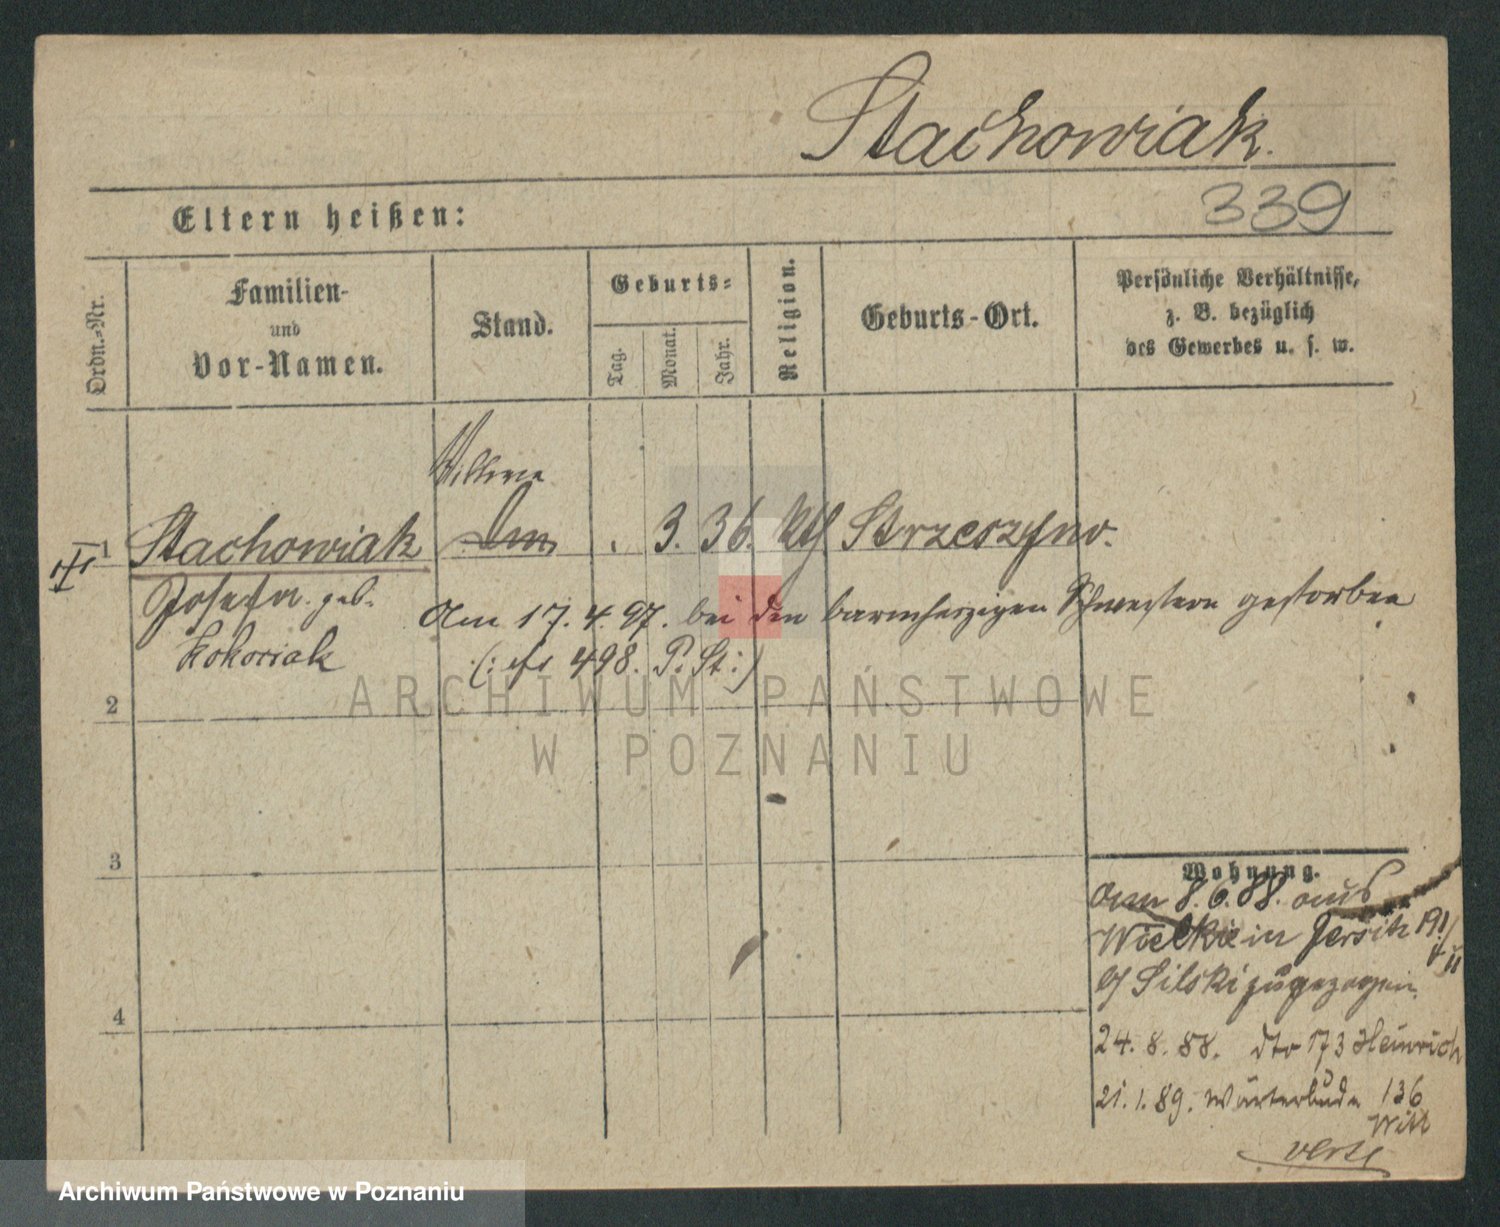 Stachowiak.
339
Eltern heißen:
Ordn.-Nr.
Familien-
und
Vor-Namen.
Stand.
Geburts-
Tag.
Monat.
Jahr.
Religion.
Geburts-Ort.
Persönliche Verhältnisse,
z. B. bezüglich
des Gewerbes u. s. w.
Wittwe
1 Stachowiak . 3. 36. kth Strzeszyno.
Josefa. geb.
Kokoriak
Am 17. 4. 97. bei den barmherzigen Schwestern gestorben
498. P. St:)
2
3
4
Wohnung.
am 8. 6. 88. aus
Wielkie in Jersitz 191/
b/ Silski zugezogen.
24. 8. 88. dto 173 Heinrich
21. 1. 89. Wärterbude 136
Witt
verte
ARCHIWUM PAŃSTWOWE
W POZNANIU
Archiwum Państwowe w Poznaniu